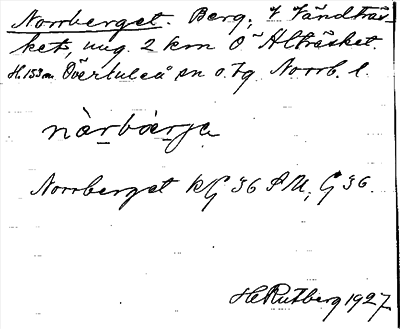 Norrberget. Berg, i Tändträs-
ket, ung. 2 km Ö Alträsket.
H. 153 m. Övertuleå sn o. tg Norrb. l.
nårbærje
Norrberget kG 36 SU, G 36.
H Rutberg 1927